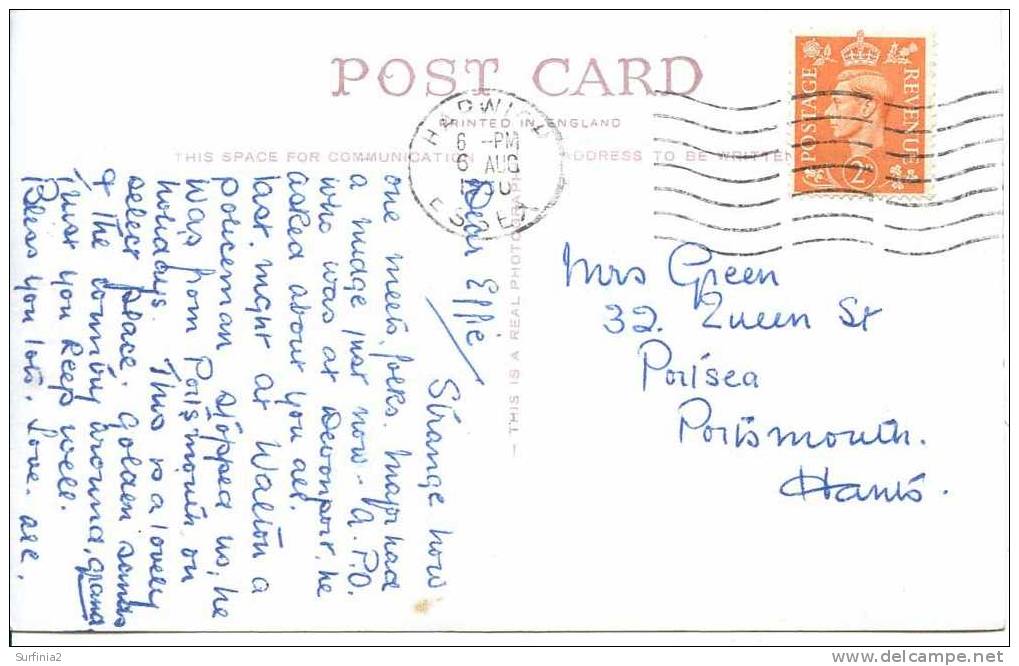 POST CARD
PRINTED IN ENGLAND
THIS SPACE FOR COMMUNICATION ADDRESS TO BE WRITTEN
THIS IS A REAL PHOTOGRAPH
HARWICH
6 -PM
6 AUG
ESSEX
POSTAGE REVENUE
2D
Dear Effie
Strange how
one meets folks. Major had
a nudge just now - a P.O.
who was at Devonport, he
asked about you all.
Last night at Walton a
policeman stopped us, he
was from Portsmouth, on
holidays. This is a lovely
select place. Golden sands
& the country round, grand
Trust you keep well.
Bless you lots. Love. all.
Mrs Green
32. Queen St
Portsea
Portsmouth.
Hants.
Surfinia2
delcampe.net